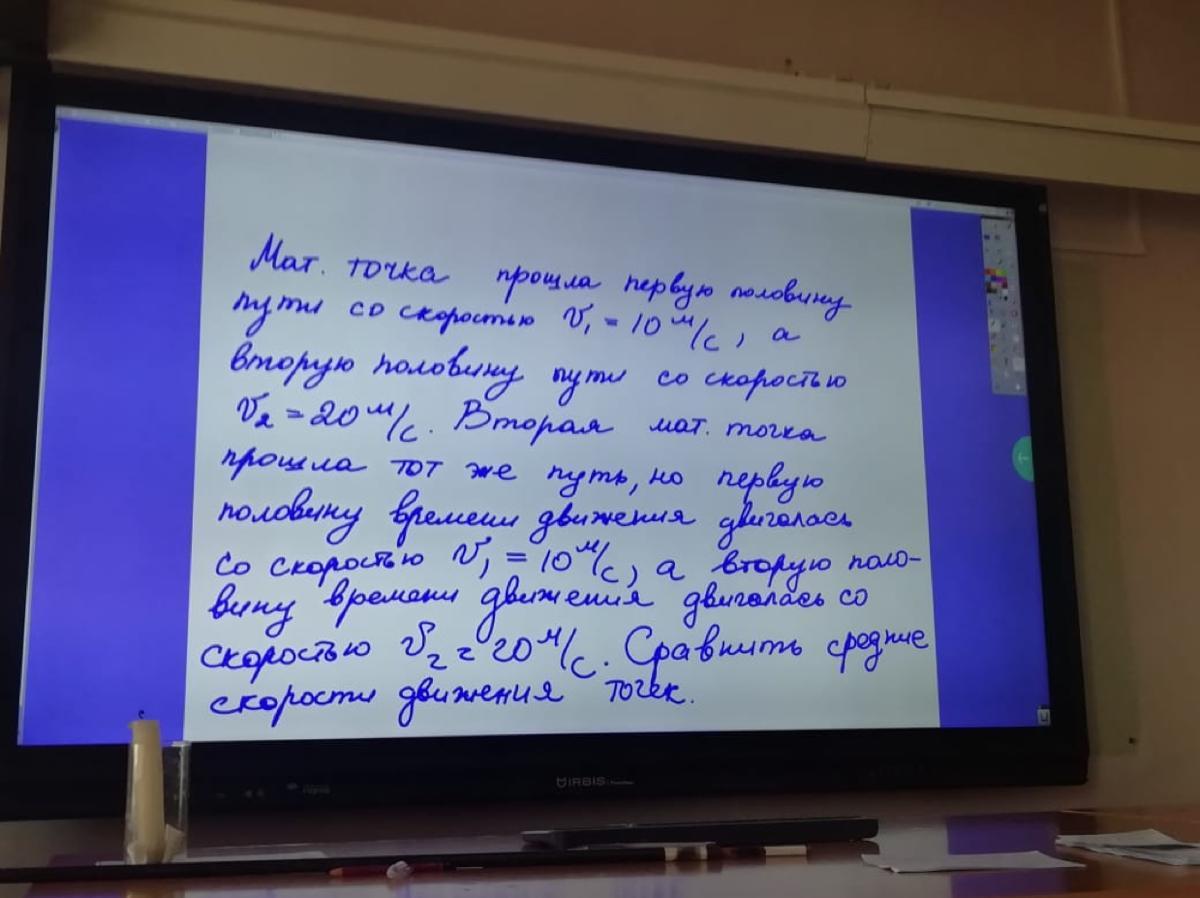 Мат. точка прошла первую половину
пути со скоростью v₁ = 10 м/с, а
вторую половину пути со скоростью
v₂ = 20 м/с. Вторая мат. точка
прошла тот же путь, но первую
половину времени движения двигалась
со скоростью v₁ = 10 м/с, а вторую поло-
вину времени движения двигалась со
скоростью v₂ = 20 м/с. Сравнить средние
скорости движения точек.
IRBIS